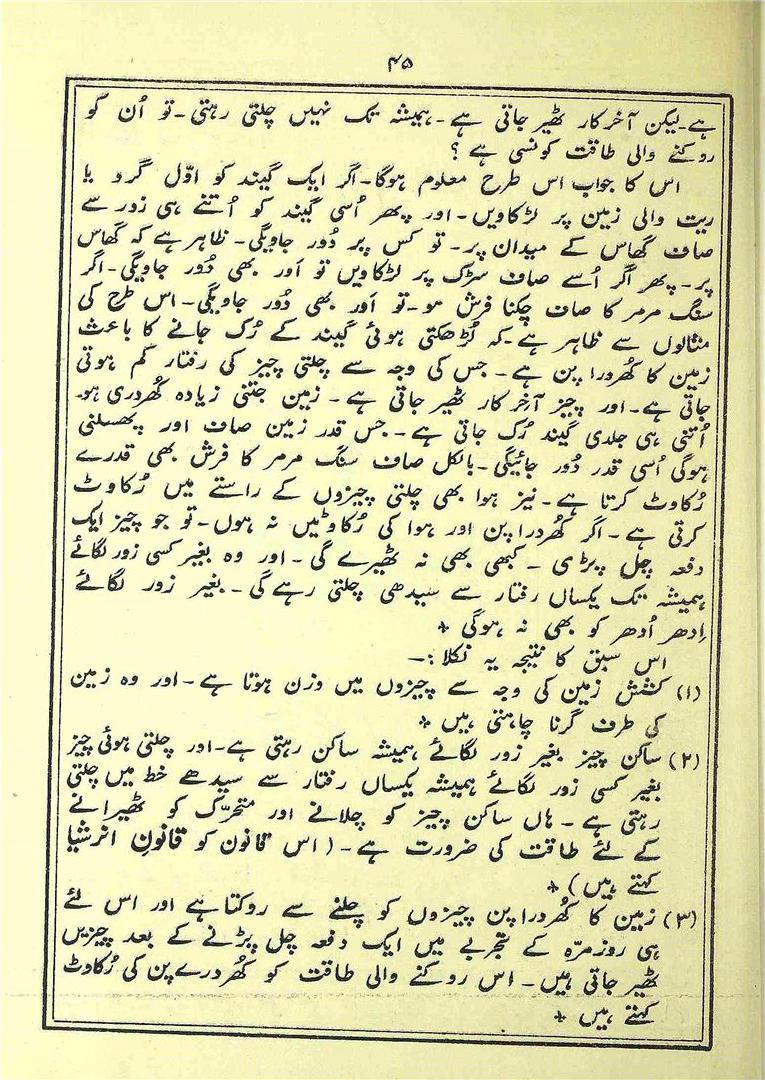 ۴۵
ہے۔ لیکن آخر کار ٹھیر جاتی ہے۔ ہمیشہ تک نہیں چلتی رہتی۔ تو اُن کو
روکنے والی طاقت کونسی ہے ؟
اس کا جواب اس طرح معلوم ہوگا۔ اگر ایک گیند کو اوّل گرد یا
ریت والی زمین پر لڑکاویں۔ اور پھر اُسی گیند کو اُتنے ہی زور سے
صاف گھاس کے میدان پر۔ تو کس پر دُور جاویگی۔ ظاہر ہے کہ گھاس
پر۔ پھر اگر اُسے صاف سڑک پر لڑکاویں تو اَور بھی دُور جاویگی۔ اگر
سنگ مرمر کا صاف چکنا فرش ہو۔ تو اَور بھی دُور جاویگی۔ اس طرح کی
مثالوں سے ظاہر ہے۔ کہ لُڑھکتی ہوئی گیند کے رُک جانے کا باعث
زمین کا کھُردرا پن ہے۔ جس کی وجہ سے چلتی چیز کی رفتار کم ہوتی
جاتی ہے۔ اور چیز آخر کار ٹھیر جاتی ہے۔ زمین جتنی زیادہ کھُردری ہو۔
اُتنی ہی جلدی گیند رُک جاتی ہے۔ جس قدر زمین صاف اور پھسلنی
ہوگی اُسی قدر دُور جائیگی۔ بالکل صاف سنگ مرمر کا فرش بھی قدرے
رُکاوٹ کرتا ہے۔ نیز ہوا بھی چلتی چیزوں کے راستے میں رُکاوٹ
کرتی ہے۔ اگر کھُردرا پن اور ہوا کی رُکاوٹیں نہ ہوں۔ تو جو چیز ایک
دفعہ چل پڑی ۔ کبھی بھی نہ ٹھیرے گی۔ اور وہ بغیر کسی زور لگائے
ہمیشہ تک یکساں رفتار سے سیدھی چلتی رہے گی۔ بغیر زور لگائے
اِدھر اُدھر کو بھی نہ ہوگی ٭
اس سبق کا نتیجہ یہ نکلا :۔
(۱) کشش زمین کی وجہ سے چیزوں میں وزن ہوتا ہے۔ اور وہ زمین
کی طرف گرنا چاہتی ہیں ٭
(۲) ساکن چیز بغیر زور لگائے ہمیشہ ساکن رہتی ہے۔ اور چلتی ہوئی چیز
بغیر کسی زور لگائے ہمیشہ یکساں رفتار سے سیدھے خط میں چلتی
رہتی ہے۔ ہاں ساکن چیز کو چلانے اور متحرّک کو ٹھیرانے
کے لئے طاقت کی ضرورت ہے۔ (اس قانون کو قانونِ انرشیا
کہتے ہیں) ٭
(۳) زمین کا کھُردرا پن چیزوں کو چلنے سے روکتا ہے اور اس لئے
ہی روزمرّہ کے تجربے میں ایک دفعہ چل پڑنے کے بعد چیزیں
ٹھیر جاتی ہیں۔ اس روکنے والی طاقت کو کھُردرے پن کی رُکاوٹ
کہتے ہیں ٭